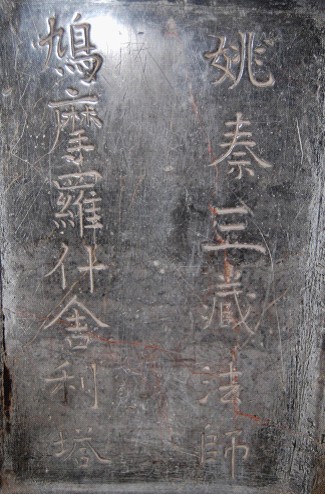 姚秦三藏法師
鳩摩羅什舍利塔